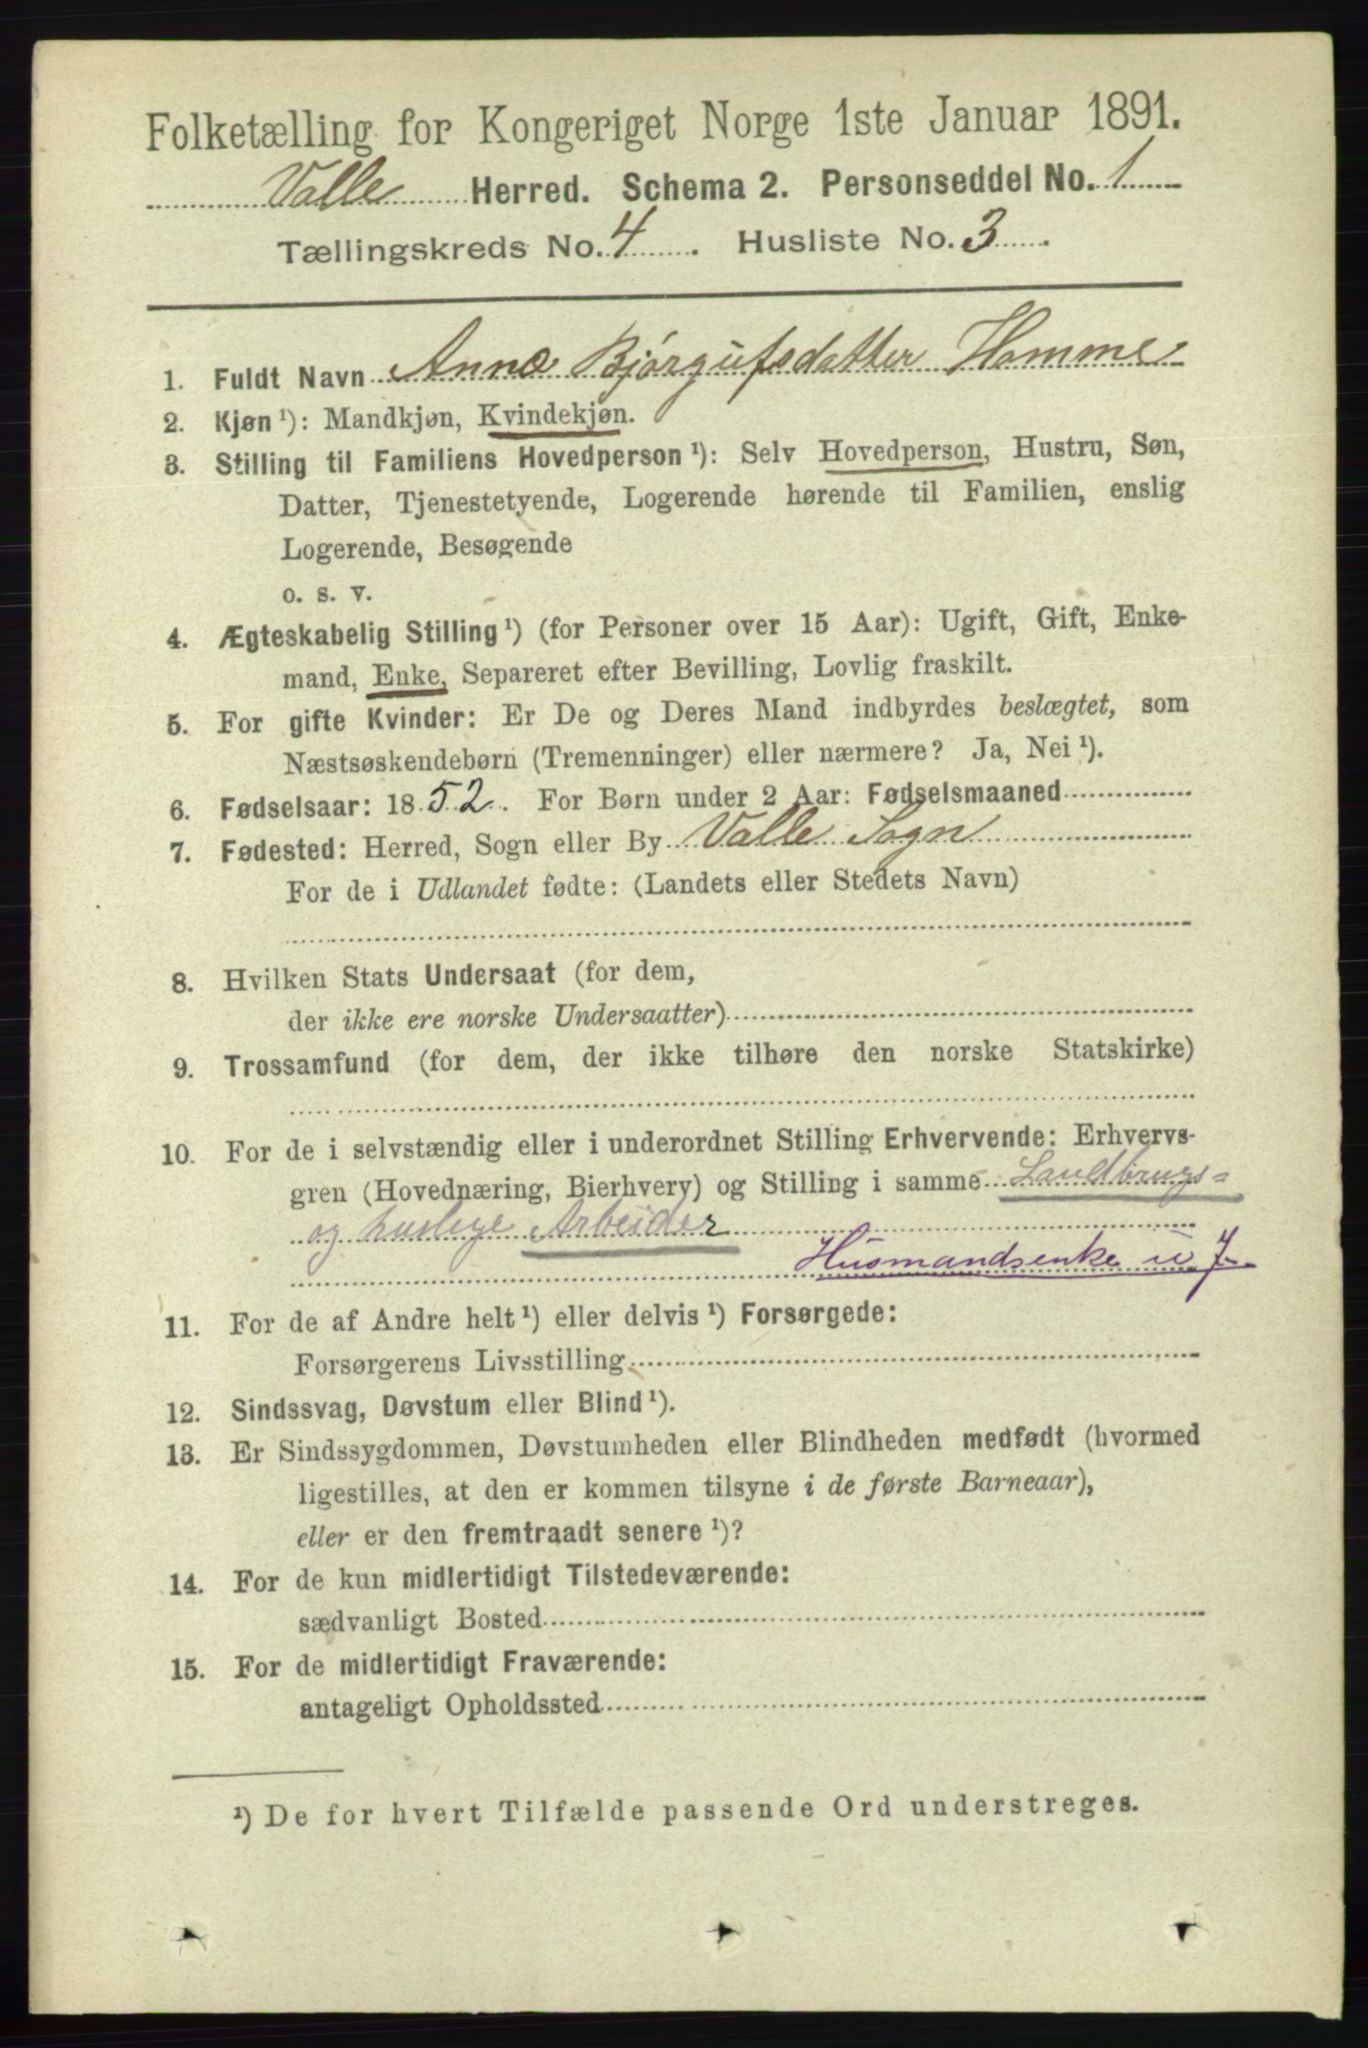 Folketælling for Kongeriget Norge 1ste Januar 1891.
Valle Herred. Schema 2. Personseddel No. 1
Tællingskreds No. 4. Husliste No. 3.
1. Fuldt Navn Anne Bjørgufsdatter Homme
2. Kjøn ¹): Mandkjøn, Kvindekjøn.
3. Stilling til Familiens Hovedperson ¹): Selv Hovedperson, Hustru, Søn,
Datter, Tjenestetyende, Logerende hørende til Familien, enslig
Logerende, Besøgende
o. s. v.
4. Ægteskabelig Stilling ¹) (for Personer over 15 Aar): Ugift, Gift, Enke-
mand, Enke, Separeret efter Bevilling, Lovlig fraskilt.
5. For gifte Kvinder: Er De og Deres Mand indbyrdes beslægtet, som
Næstsøskendebørn (Tremenninger) eller nærmere? Ja, Nei ¹).
6. Fødselsaar: 1852. For Børn under 2 Aar: Fødselsmaaned
7. Fødested: Herred, Sogn eller By Valle Sogn
For de i Udlandet fødte: (Landets eller Stedets Navn)
8. Hvilken Stats Undersaat (for dem,
der ikke ere norske Undersaatter)
9. Trossamfund (for dem, der ikke tilhøre den norske Statskirke)
10. For de i selvstændig eller i underordnet Stilling Erhvervende: Erhvervs-
gren (Hovednæring, Bierhverv) og Stilling i samme Landbrugs-
og huslige Arbeider
Husmandsenke u J.
11. For de af Andre helt ¹) eller delvis ¹) Forsørgede:
Forsørgerens Livsstilling
12. Sindssvag, Døvstum eller Blind ¹).
13. Er Sindssygdommen, Døvstumheden eller Blindheden medfødt (hvormed
ligestilles, at den er kommen tilsyne i de første Barneaar),
eller er den fremtraadt senere ¹)?
14. For de kun midlertidigt Tilstedeværende:
sædvanligt Bosted
15. For de midlertidigt Fraværende:
antageligt Opholdssted
¹) De for hvert Tilfælde passende Ord understreges.